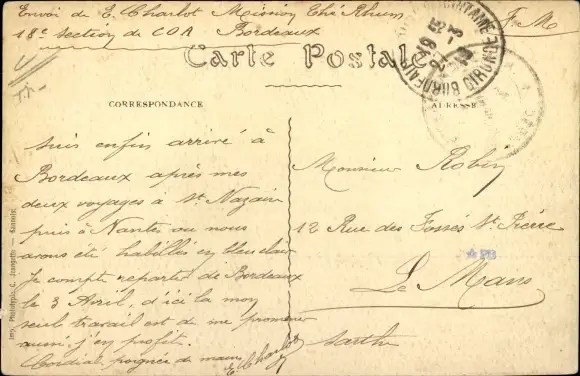 Envoi de E. Charlot Mission Thé Rhum F. M
18e section de COA Bordeaux
Carte Postale
CORRESPONDANCE
ADRESSE
suis enfin arrivé à
Bordeaux après mes
deux voyages à St. Nazaire
puis à Nantes ou nous
avons été habillés en bleu clair
Je compte repartir de Bordeaux
le 3 Avril, d'ici là mon
seul travail est de me promener
aussi j'en profite.
Cordial poignée de main
E Charlot
Monsieur Robin
12 Rue des Fossés St. Pierre
Le Mans
Sarthe
Imp. Phototypie C. Jeangette